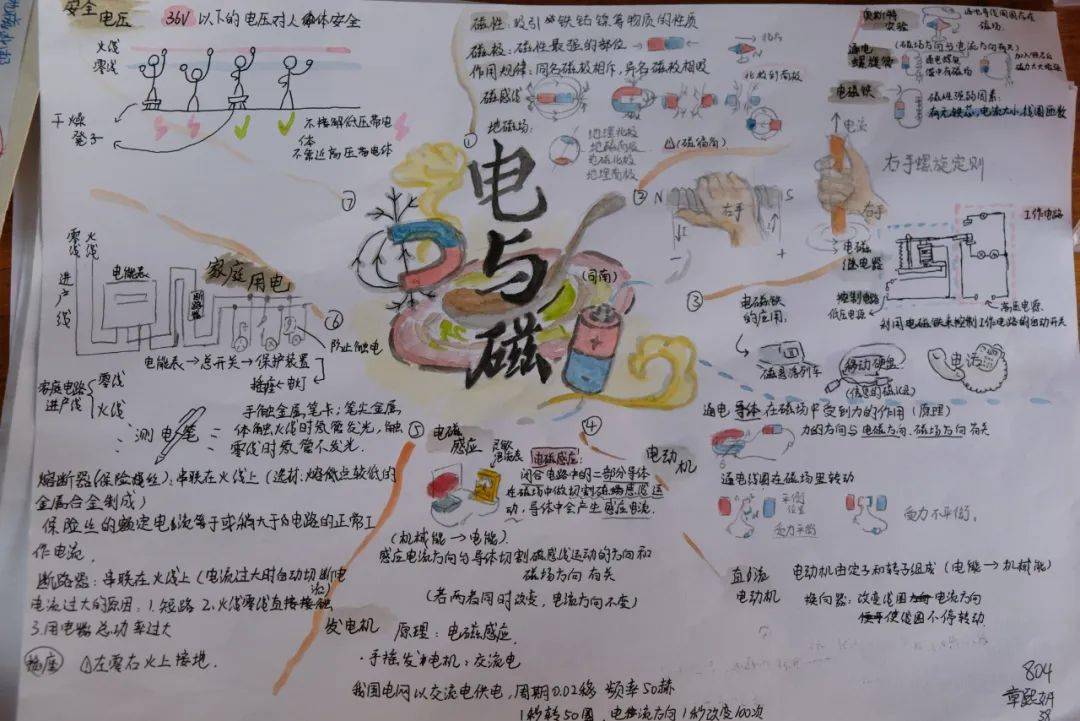 安全电压 36V以下的电压对人体安全
火线
零线
干燥
凳子
不接触低压带电
体
不靠近高压带电体
⑦
磁性：吸引铁钴镍等物质的性质
磁极：磁性最强的部位
作用规律：同名磁极相斥，异名磁极相吸
磁感线
北极到南极
地磁场：
地理北极
地磁南极
地磁北极
地理南极
(磁偏角)
①
电与磁
(司南)
②
奥斯特
实验
通电导线周围存在
磁场.
(磁场方向与电流方向有关)
通电
螺旋管
电磁铁
磁性强弱因素：
有无铁芯，电流大小，线圈匝数
电流
右手螺旋定则
N
S
右手
I
I
右手
③
电磁
继电器
工作电路
控制电路
低压电源
高压电源
利用电磁铁来控制工作电路的自动开关
电磁铁
的应用：
磁悬浮列车
移动硬盘
(信息的磁记录)
电话
零线
火线
进户线
电能表
断路器
家庭用电
⑥
防止触电
电能表→总开关→保护装置
插座←电灯
家庭电路
进户线
零线
火线
测电笔
手触金属笔卡；笔尖金属
体触火线时氖管发光，触
零线时氖管不发光.
熔断器(保险丝)：串联在火线上(选材：熔点较低的
金属合金制成)
保险丝的额定电流等于或稍大于电路的正常工
作电流.
断路器：串联在火线上(电流过大时自动切断电
流)
电流过大的原因：1.短路 2.火线零线直接接触
3.用电器总功率过大
插座 ①左零右火上接地.
⑤
电磁
感应
灵敏
电流表
电磁感应：
闭合电路中的一部分导体
在磁场中做切割磁感线运
动，导体中会产生感应电流.
(机械能→电能)
感应电流方向与导体切割磁感线运动的方向和
磁场方向有关
(若两者同时改变，电流方向不变)
发电机
原理：电磁感应.
·手摇发电机：交流电
我国电网以交流电供电，周期0.02秒 频率50赫
1秒转50圈，电流方向1秒改变100次
④
电动机
通电导体在磁场中受到力的作用(原理)
力的方向与电流方向、磁场方向有关
通电线圈在磁场里转动
平衡
位置
受力平衡
受力不平衡.
直流
电动机
电动机由定子和转子组成(电能→机械能)
换向器：改变线圈电流方向
使线圈不停转动.
804
38